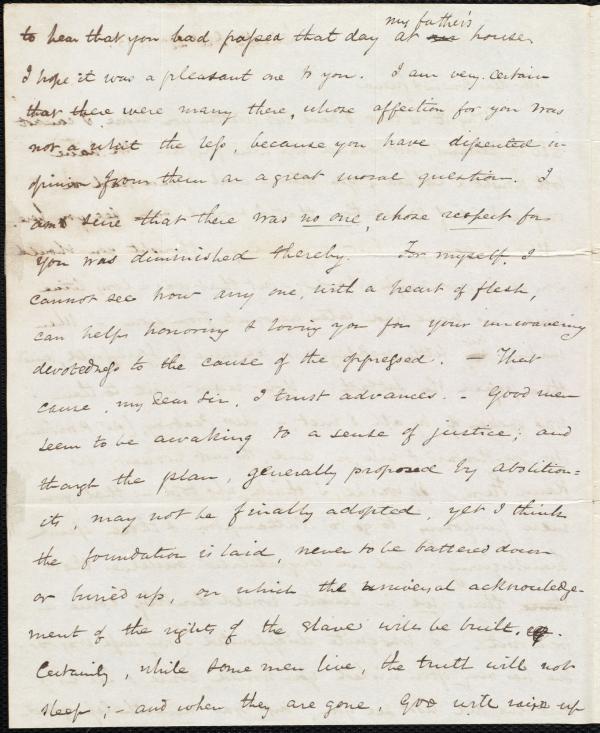 my father's
to hear that you had passed that day at house.
I hope it was a pleasant one to you. I am very certain
that there were many there, whose affection for you was
not a whit the less, because you have dissented in
opinion from them on a great moral question. I
am sure that there was no one, whose respect for
you was diminished thereby. For myself, I
cannot see how any one, with a heart of flesh,
can help honoring & loving you for your unwavering
devotedness to the cause of the oppressed. — That
cause, my dear Sir, I trust advances. - Good men
seem to be awaking to a sense of justice; and
though the plan, generally proposed by abolition=
ists, may not be finally adopted, yet I think
the foundation is laid, never to be battered down
or buried up, on which the universal acknowledge-
ment of the rights of the slave will be built.
Certainly, while some men live, the truth will not
sleep; - and when they are gone, God will raise up